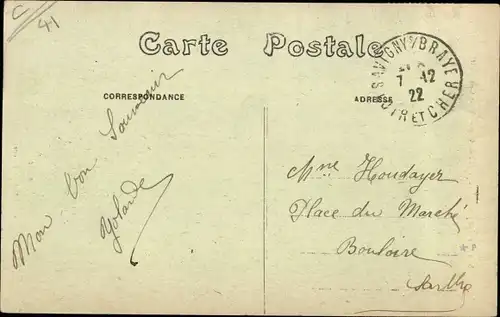 C
41
Carte Postale
CORRESPONDANCE
ADRESSE
SAVIGNY S/ BRAYE
7 12
22
LOIR ET CHER
Mon bon Souvenir
Yolande
Mme Houdayer
Place du Marché
Bouloire
Sarthe